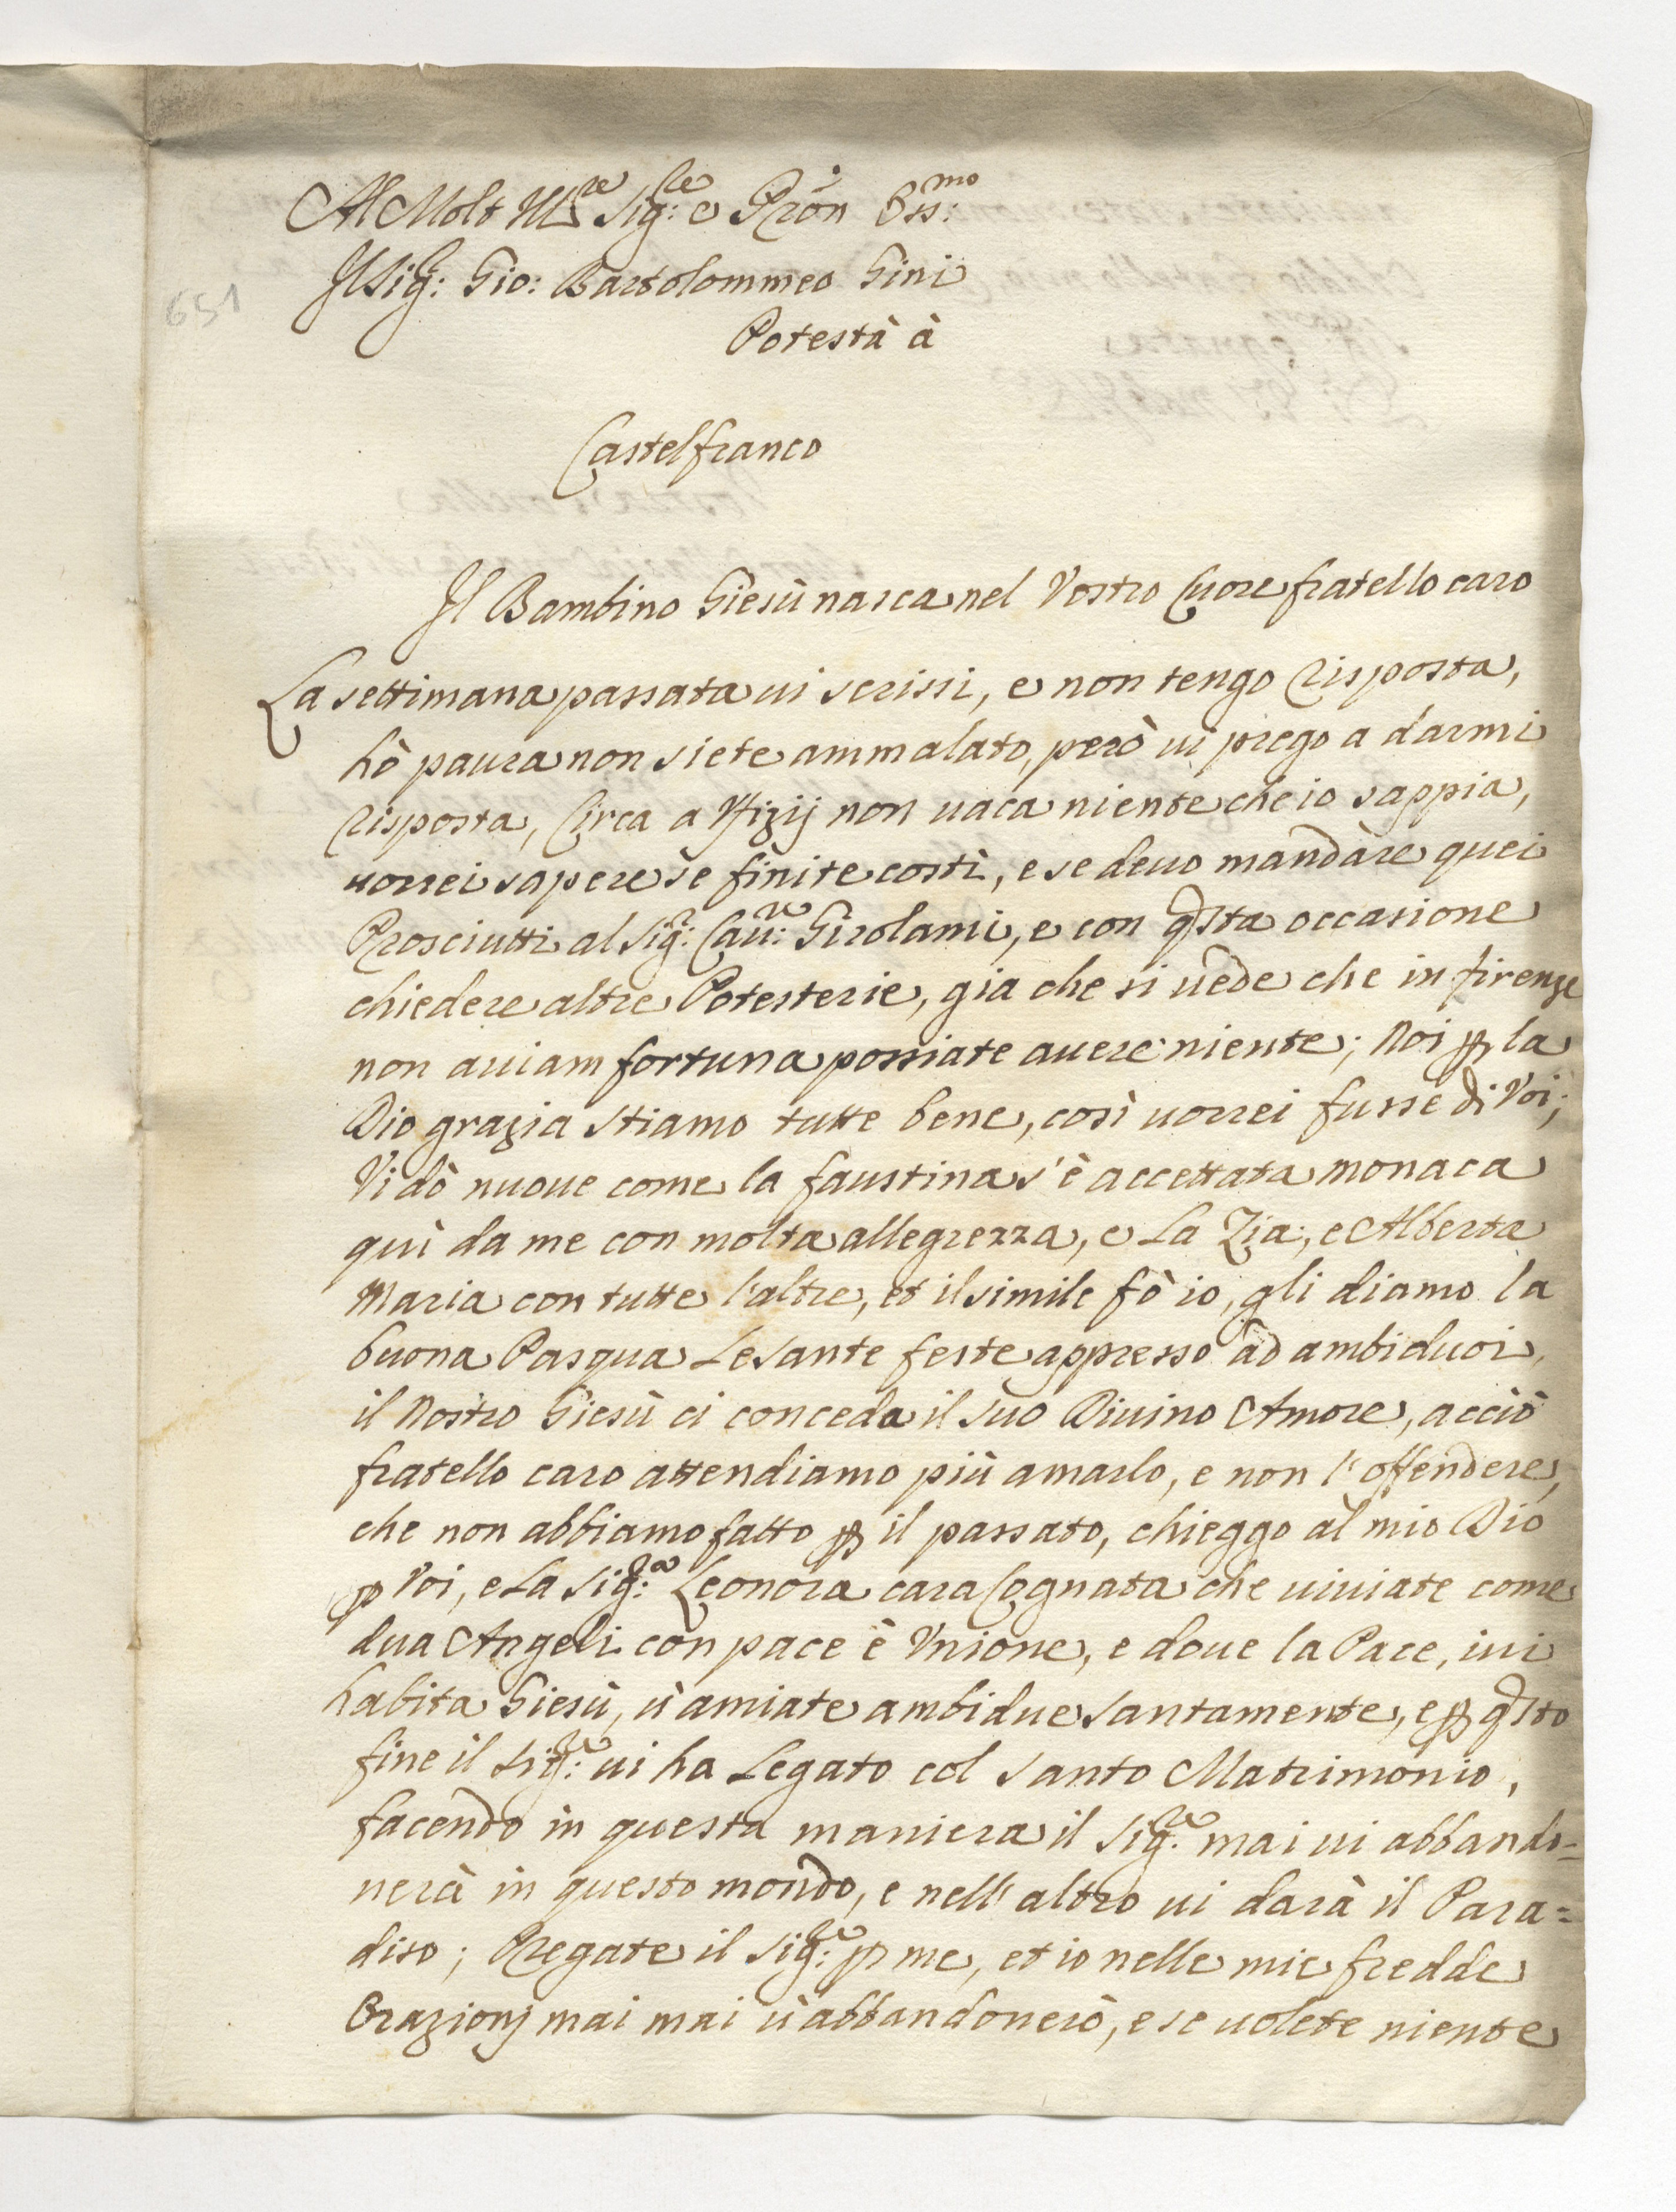 Al Molt Ill.re Sig:re e Pron Oss:mo
Il Sig: Gio: Bartolommeo Gini
Potestà à
651
Castelfranco
Il Bambino Giesù nasca nel Vostro Cuore fratello caro
La settimana passata ui scrissi, e non tengo risposta,
hò paura non siete ammalato, però ui prego a darmi
risposta, Circa a Vfizij non uaca niente che io sappia,
uorrei sapere se finite costì, e se deuo mandàre quei
Prosciutti al Sig:r Cau:re Girolami, e con qsta occasione
chiedere altre Potesterie, gia che si uede che in firenze
non auiam fortuna possiate auere niente; Noi p la
Dio grazia stiamo tutte bene, così uorrei fusse di Voi;
Vi dò nuoue come la faustina s'è accettata monaca
quì da me con molta allegrezza, e La Zia, e Alberta
Maria con tutte l'altre, et il simile fò io, gli diamo la
buona Pasqua Le Sante feste appresso ad ambiduoi,
il Nostro Giesù ci conceda il suo Diuino Amore, acciò
fratello caro attendiamo più amarlo, e non l'offendere,
che non abbiamo fatto p il passato, chieggo al mio Dio
p Voi, e La Sig:ra Leonora cara Cognata che uiuiate come
dua Angeli con pace è Vnione, e doue la Pace, iui
habita Giesù, u'amiate ambidue santamente, e p qsto
fine il Sig:re ui ha Legato col santo Matrimonio,
facendo in questa maniera il Sig:re mai ui abbando=
nerà in questo mondo, e nell'altro ui darà il Para=
diso; Pregate il Sig:re p me, et io nelle mie fredde
Orazionj mai mai u'abbandonerò, e se uolete niente